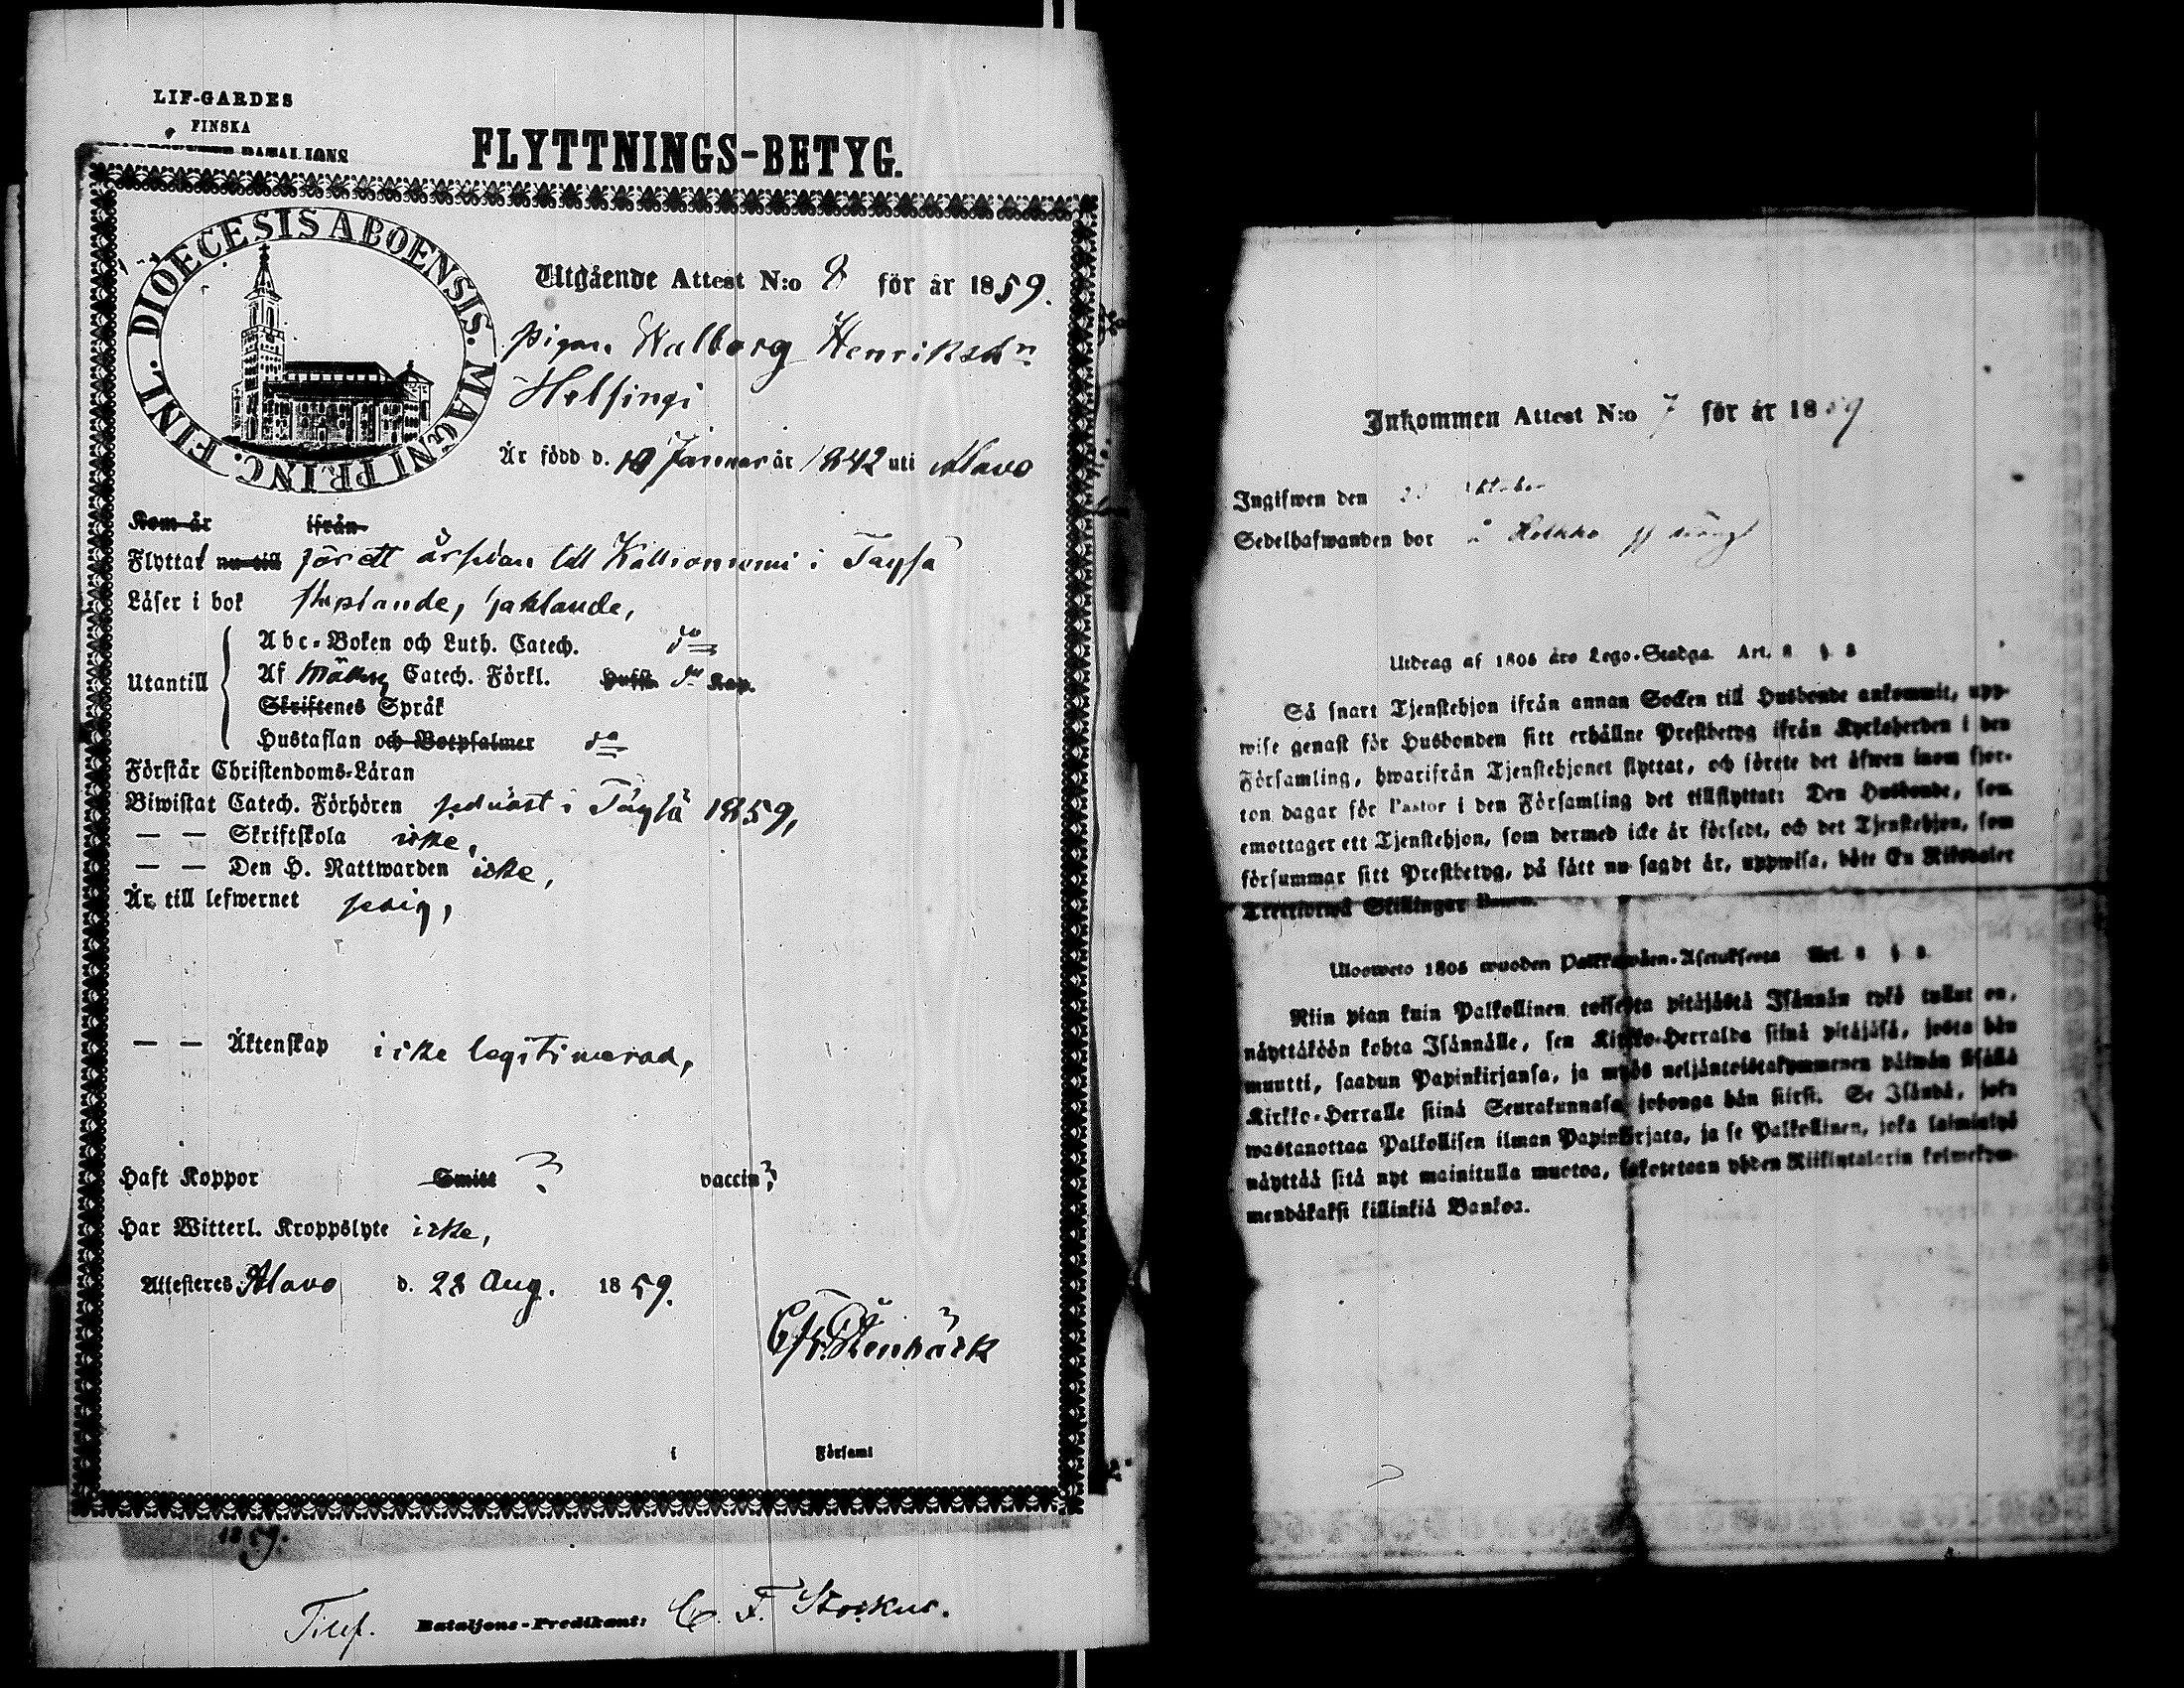 LIF-GARDES
FINSKA
BATALJONS
FLYTTNINGS-BETYG.
DIOECESIS ABOENSIS. MAGNI PRINC. FINL.
Utgående Attest N:o 8 för år 1859.
Pigan Walborg Henriksdr
Helsingi
Är född d. 19 Januar år 1842 uti Alavo
Kom år ifrån
Flyttat nu till för ett år sedan till i Taysä
Läser i bok
Utantill
Abc-Boken och Luth. Catech. do
Af Catech. Förkl. do Kap.
Skriftenes Språk
Hustaflan och Botpsalmer do
Förstår Christendoms-Läran
Biwistat Catech. Förhören sednast i Taysä 1859,
— — Skriftskola icke,
— — Den H. Nattwarden icke,
Är till lefwernet
— — Äktenskap icke legitimerad,
Haft Koppor Smitt ? vaccin?
Har Witterl. Kroppslyte icke,
Attesteres Alavo d. 28 Aug. 1859.
Stenbäck
i Förfaml
1859.
Bataljons-Predikant: C. F.
Inkommen Attest N:o 7 för år 1859
Ingifwen den Oktober
Sedelhafwanden bor å
Utdrag af 1805 års Lego-Stadga. Art. 8 §
Så snart Tjenstehjon ifrån annan Socken till Husbonde ankommit, upp-
wise genast för Husbonden sitt erhållne Prestbetyg ifrån Kyrkoherden i den
Församling, hwarifrån Tjenstehjonet flyttat, och förete det äfwen inom fjor-
ton dagar för Pastor i den Församling det tillflyttat: Den Husbonde, som
emottager ett Tjenstehjon, som dermed icke är försedt, och det Tjenstehjon, som
försummar sitt Prestbetyg, på sätt nu sagdt är, uppwisa, böte En Riksdaler
Trettiotwå Skillingar Banco.
Ulosweto 1805 wuoden Palkkawäen-Asetuksesta Art. 8 §
Niin pian kuin Palkollinen toisesta pitäjästä Isännän tykö tullut on,
näyttäköön kohta Isännälle, sen Kirkko-Herralda siinä pitäjäsä, josta hän
muutti, saadun Papinkirjansa, ja myös neljäntoistakymmenen päiwän sisällä
Kirkko-Herralle siinä Seurakunnasa johonga hän siirsi. Se Isändä, joka
wastanottaa Palkollisen ilman Papinkirjata, ja se Palkollinen, joka laiminlyö
näyttää sitä nyt mainitulla muotoa, sakotetaan yhden Riikintalarin kolmekym-
mendäkaksi killinkiä Bankoa.